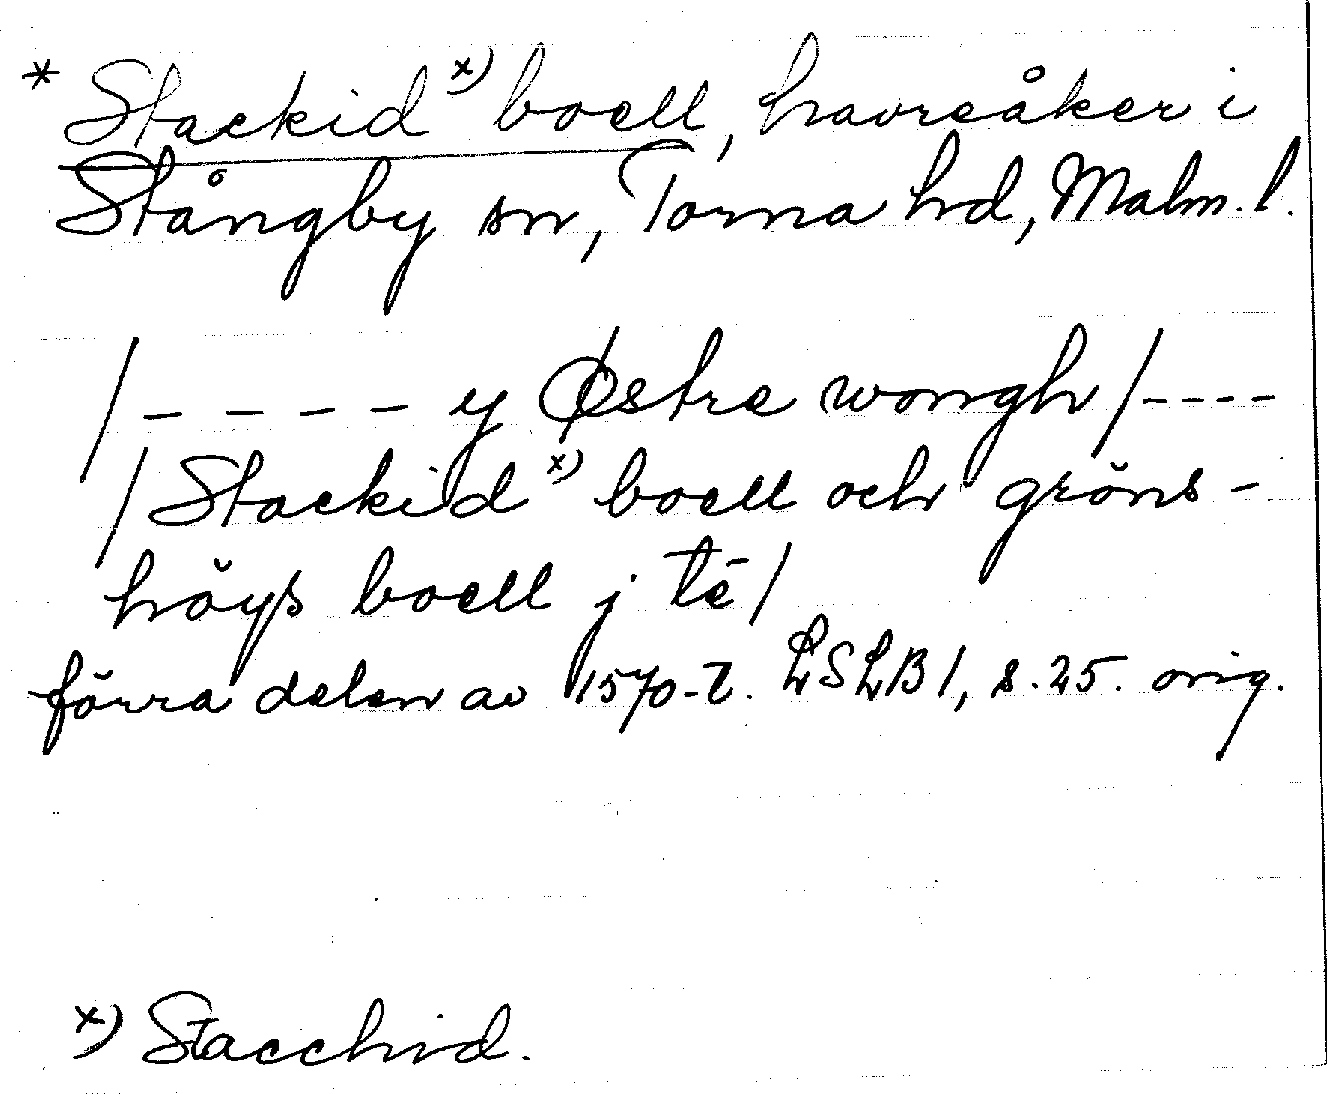 * Stackid x) boell, havreåker i
Stångby sn, Torna hd, Malm. l.
/ - - - - y Østre wongh / - - - -
/ Stackid x) boell och gröns -
höys boell j tē /
förra delen av 1570-t. LSLB 1, s. 25. orig.
x) Stacchid.